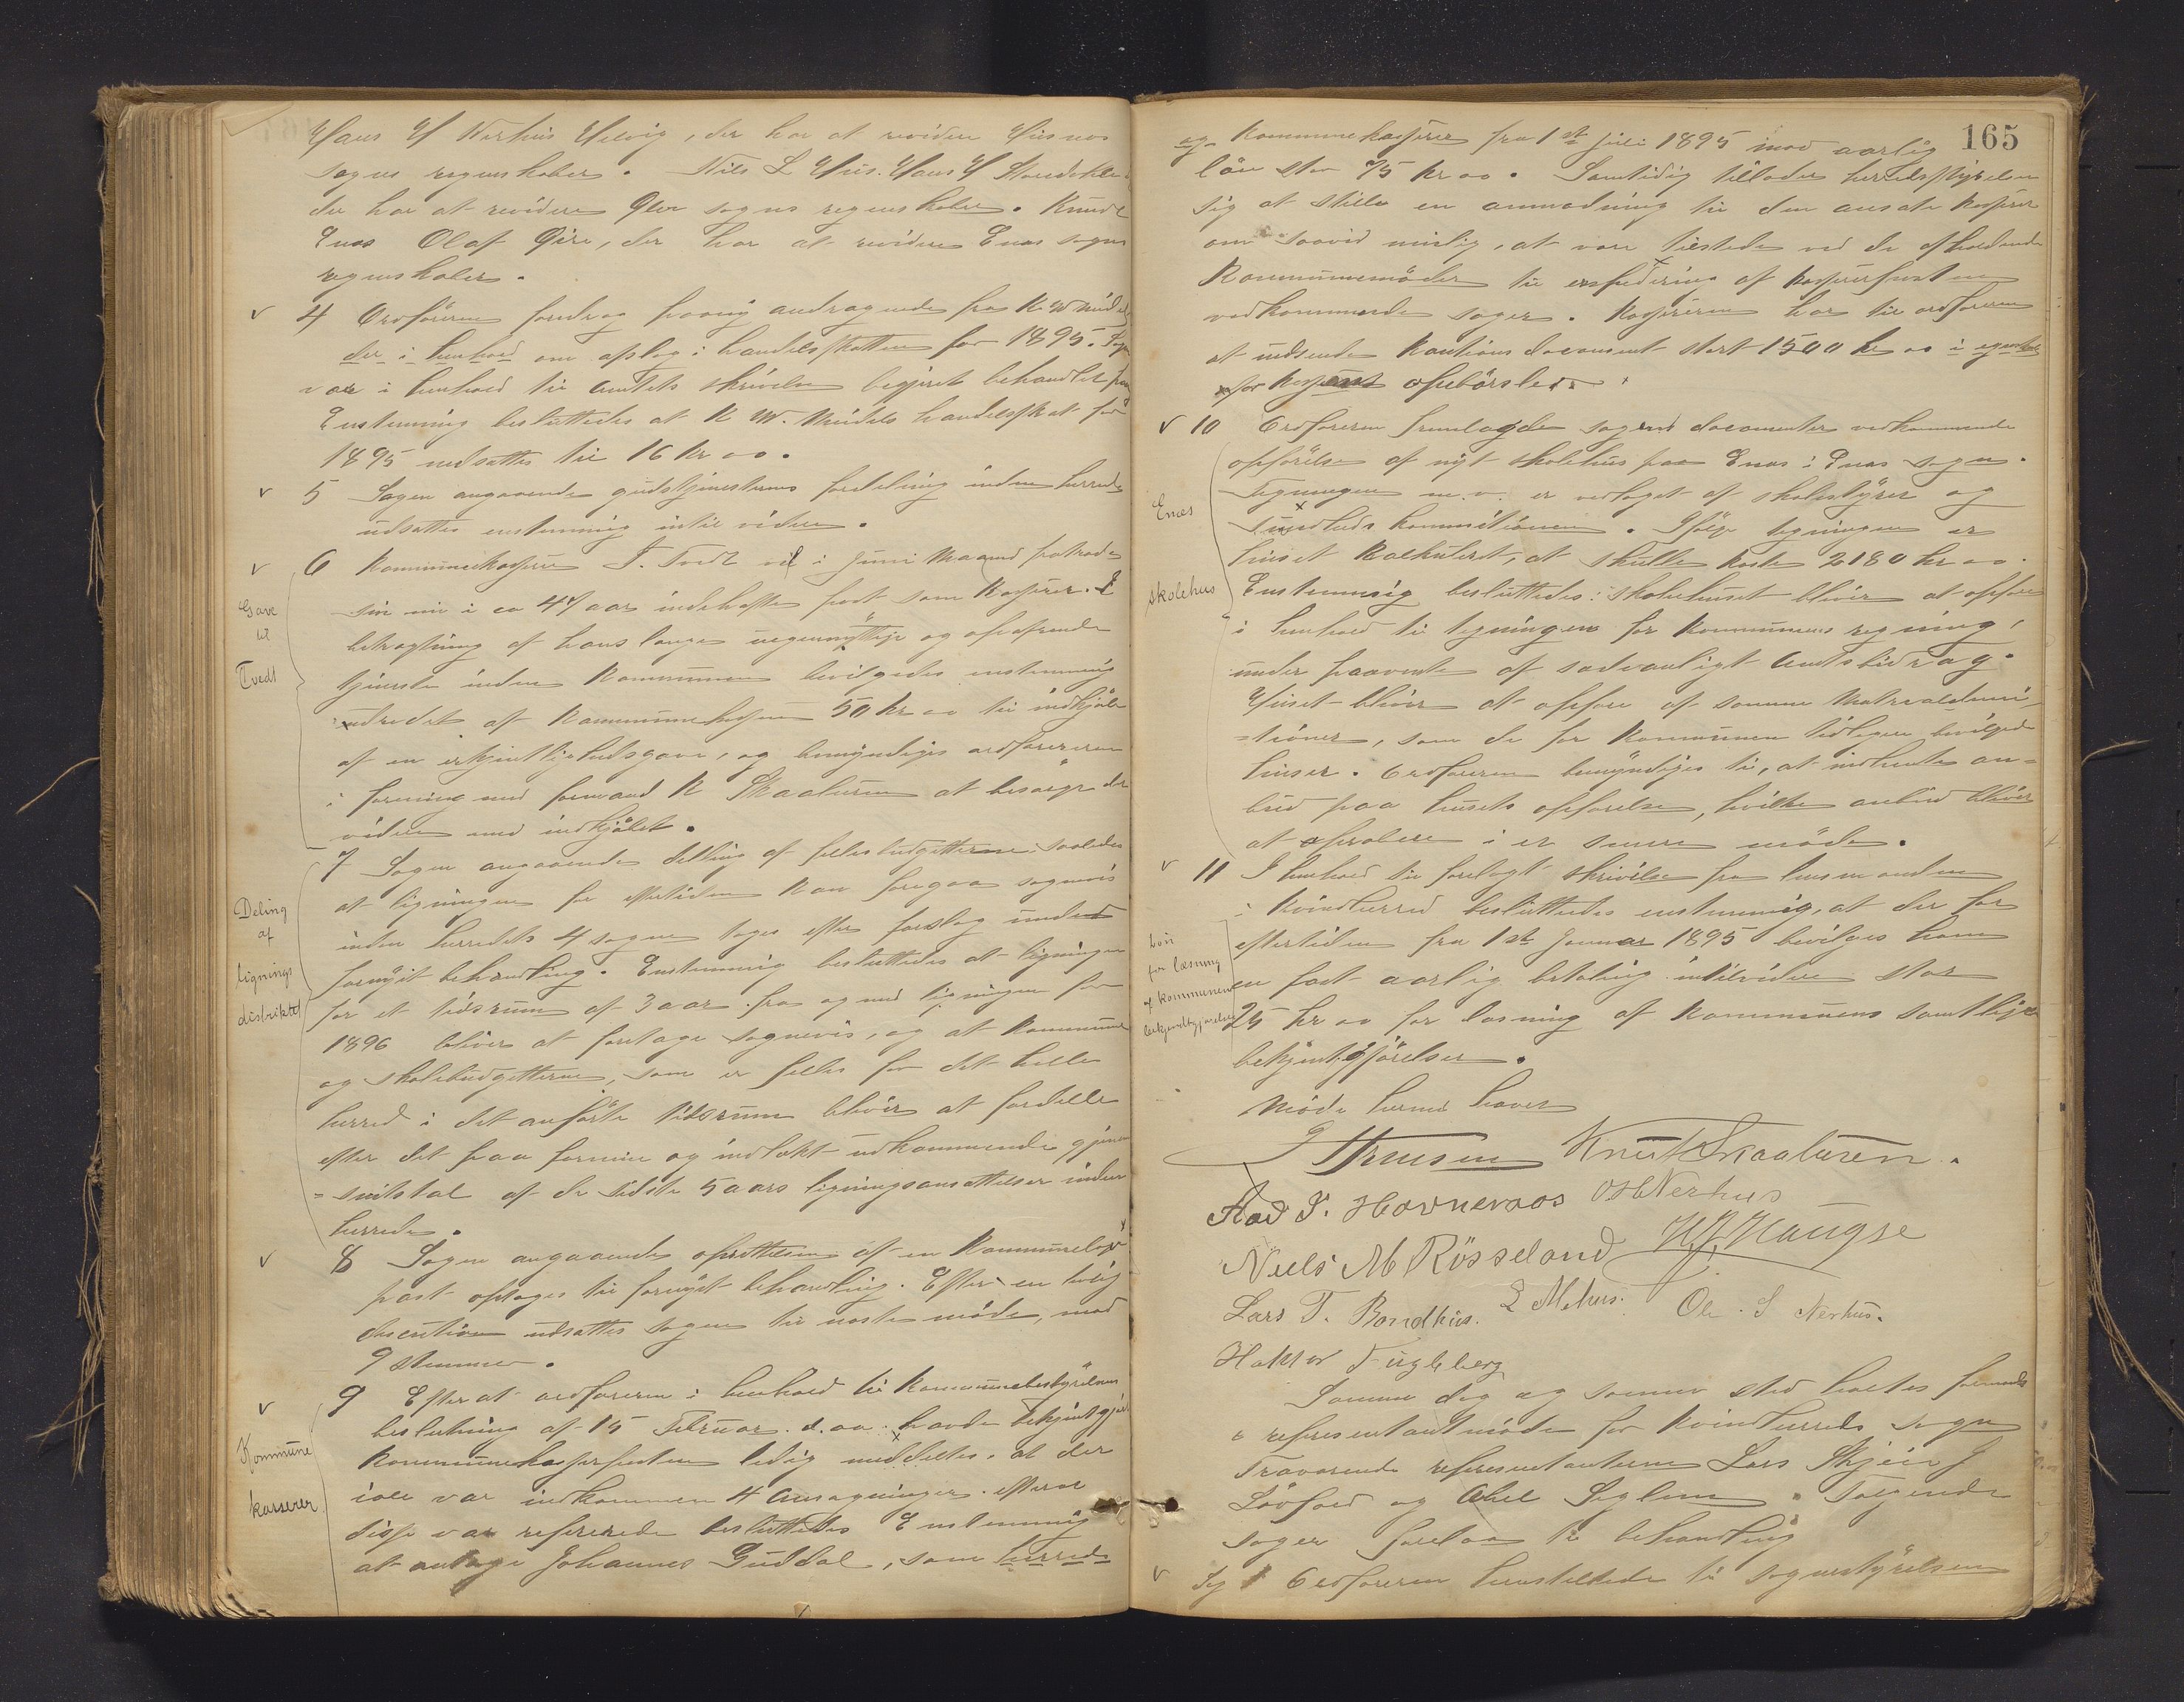 Hans H Nerhus Helvig, der har at revidere Husnes
sogns regnskaber. Nils L Hus. Hans H
der har at revidere Ølve sogns regnskaber. Knudt
Enes Olaf Øire, der har at revidere Enes sogns
regnskaber.
4 Ordføreren foredrog paany andragende fra K W
i henhold om afslag i handelsskatten for 1895. Sagen
var i henhold til amtets skrivelse begjært behandlet paa
Enstemmig besluttedes at K W. Mündels handelsskat for
1895 nedsattes til 16 kr oo.
5 Sagen angaaende gudstjenesternes fordeling inden herredet
udsattes enstemmig intil videre.
Gave
til
Tvedt
6 Kommunekasserer J. Tvedt vil i Juni Maaned fratræde
sin nu i ca 47 aar indehafte post som Kasserer. I
betragtning af hans lange uegennyttige og opofrende
tjeneste inden Kommunen bevilgedes enstemmig
udredet af Kommunekassen 50 kr oo til indkjøb
af en erkjentlighedsgave, og bemyndiges ordføreren
i forening med formand K Skaaluren at besørge det
videre med indkjøbet.
Deling
af
lignings
distriktet
7 Sagen angaaende deling af fellesbudgetterne saaledes
at ligningen for eftertiden kan foregaa sognevis
inden herredets 4 sogne toges efter forslag under
fornyit behandling. Enstemmig besluttedes at ligningen
for et tidsrum af 3 aar fra og med ligningen for
1896 bliver at foretage sognevis, og at Kommune
og skolebudgetterne, som er felles for det helle
herred i det anførte tidsrum blivir at fordelle
efter det paa formue og indtekt udkommende gjenem
=snitstal af de sidste 5 aars ligningsansettelser inden
herredet.
8 Sagen angaaende oprettelsen af en Kommunelæge
post optoges til fornyet behandling. Efter en livlig
discution udsattes sagen til neste møde, mod
9 stemmer.
Kommune
kasserer
9 Efter at ordføreren i henhold til Kommunebestyrelsens
beslutning af 15 Februar d. aa. havde bekjentgjort
Kommunekasserposten ledig meddeltes, at der
ialt var indkommen 4 Ansøgninger. efterat
disse var refererede besluttedes Enstemmig
at antage Johannes Guddal, som herreds
165
og Kommunekasserer fra 1st Juli 1895 mod aarlig
løn stor 75 kr oo. Samtidig tillader herredsstyrelsen
sig at stille en anmodning til den ansatte kasserer
om saavid mulig, at vere tilstede ved de afholdende
Kommunemøder til expedering af kassererposten
vedkommende sager. Kassereren har til ordføreren
at indsende Kautions document stort 1500 kr oo i
for oppebørsler.
Enes
skolehus
10 Ordføreren fremlagde sagens documenter vedkommende
opførelse af nyt skolehus paa Enes i Enes sogn.
Tegningen m.v. er vedtaget af skolestyret og
sundheds kommisionen. Ifølge tegningen er
huset kalkulert, at skulle koste 2180 kr oo.
Enstemmig besluttedes: skolehuset blivir at opføre
i henhold til tegningen for Kommunens regning,
under paavente af sedvanligt Amtsbidrag.
Huset blivir at opføre af samme
=tioner, som de for Kommunen tidligere bevilgede
huser. Ordføreren bemyndiges til, at indhente an=
bud paa husets opførelse, hvilke anbud blivir
at aprobere i et senere møde.
Løn
for læsning
af kommunens
bekjendtgjørelser
11 I henhold til forelagt skrivelse fra lensmanden
i Kvindherred besluttedes enstemmig, at der for
eftertiden fra 1ste Januar 1895 bevilges ham
en fast aarlig betaling intilvidere stor
25 kr oo for læsning af Kommunens samtlige
bekjentgjørelser.
Møde hermed hævet
G Thuesen Knut Skaaluren.
Aad J. Havnevaas OH Nerhus
Neels M Rösseland HJ Haugse
Lars T. Bondhus. L Mehus. Ole S Nerhus.
Haktor Fugleberg
Samme dag og samme sted holtes formands
& representantmøde for Kvindherreds sogn
Fraværende representanterne Lars Skjeie J
Løvfald og Abel Seglem. Følgende
sager forelaa til behandling
Sg 1 Ordføreren henstillede til sognestyrelsen